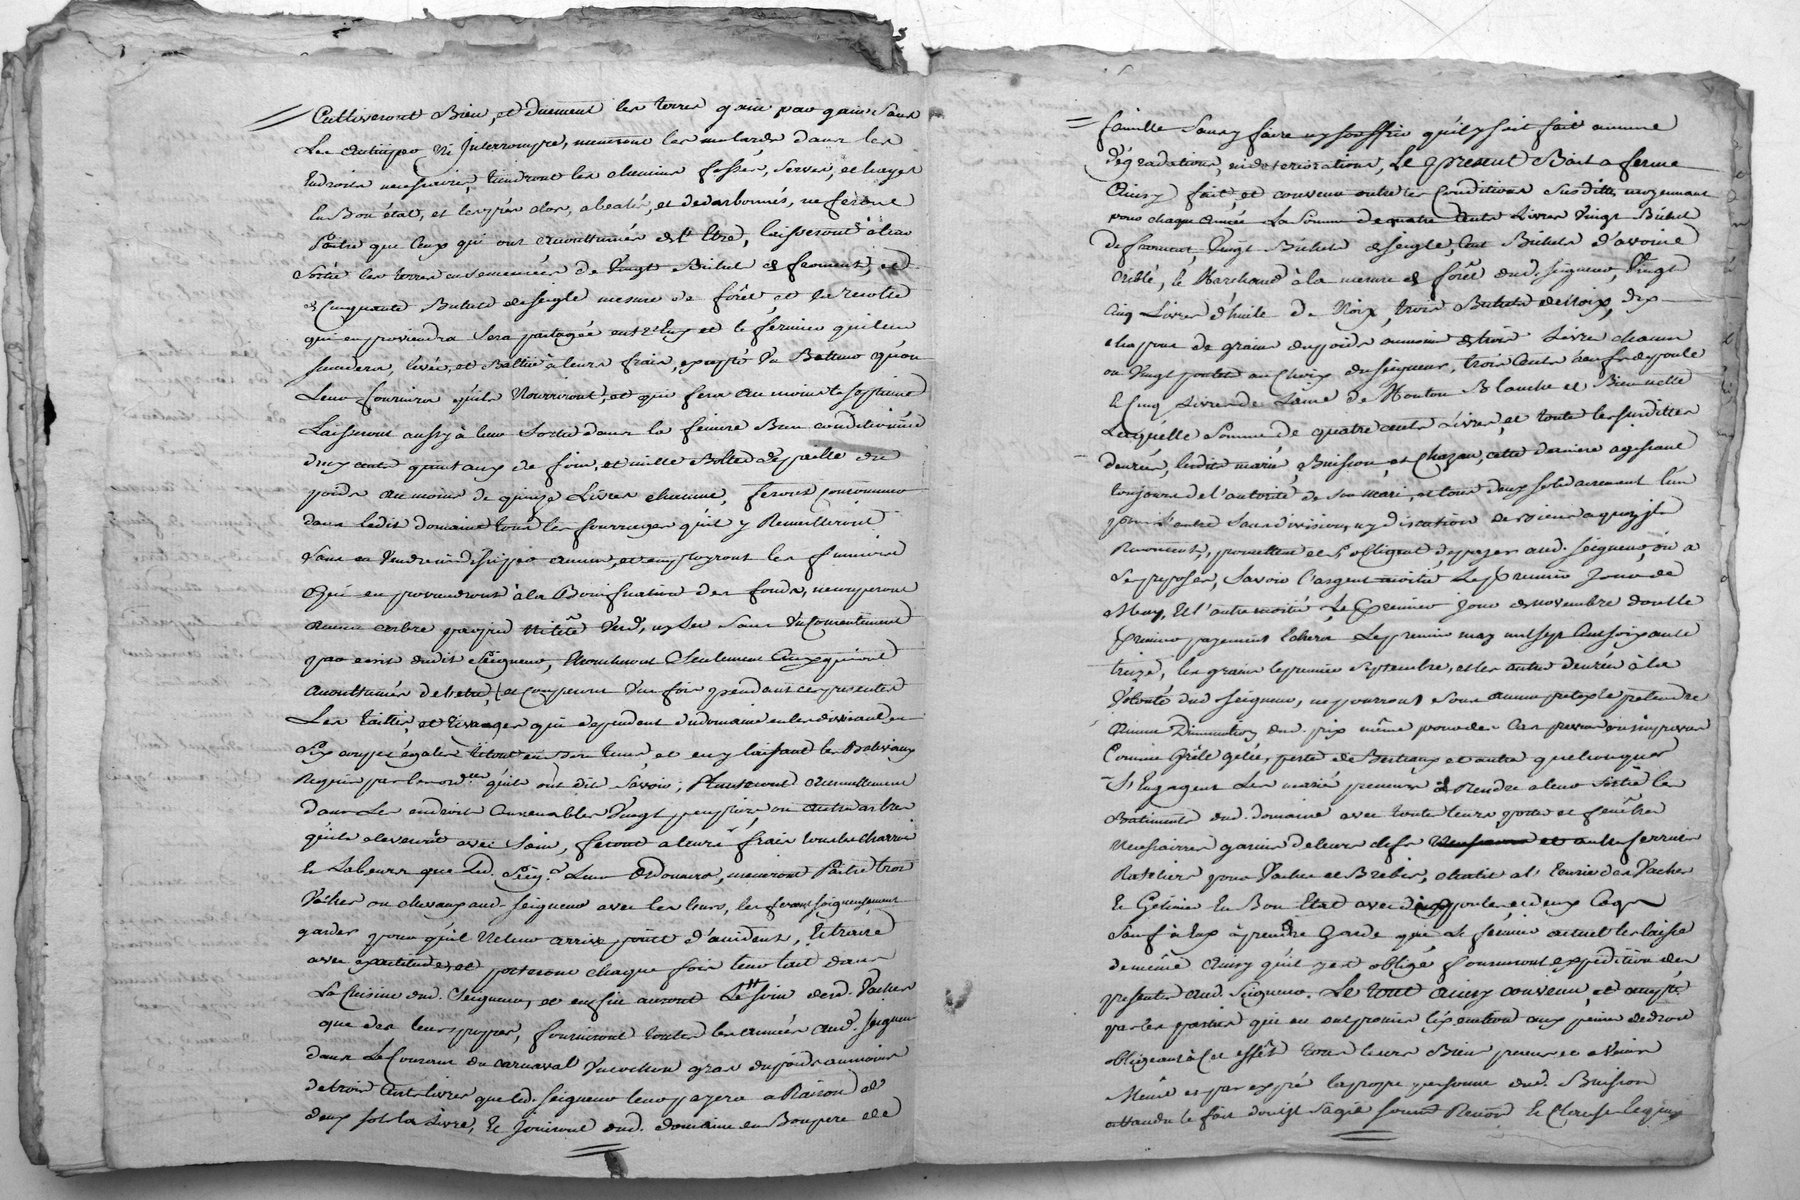 Cultiveront Bien, et duement les terres gain par gain sans
Les antiiper Ni Jnterrompre, meneront les molards dans les
Endroits necessaires, tiendront les chemins fossés, serves, et hayes
En Bon état, et les prés clos, abealés, et desarbonnés, ne feront
Paitre que Ceux qui ont accouttumés de l'Etre, laisseront à leur
Sortie les terres ensemencées de Vingt Bichet de froment, et
de Cinquante Bichets de seigle mesure de forêt et la recolte
qui en proviendra Sera partagée entr'Eux et le fermier qui leur
succedera, levée, et Battüe à leurs frais, excepté Un Batteur qu'on
Leur fournira qu'ils Nourriront, et qui fera au moins
Laisseront aussy à leur Sortie dans la feniere Bien conditionnée
deux cents quintaux de foin, et mille Bottes de paille du
poids au moins de quinze Livres chacune, feront consommer
dans ledit domaine tous les fourrages qu'il y Receuilleront
sans en Vendre ni dissiper aucun, et employront les fumiers
Qui en proviendront à la Bonification des fonds, ne couperont
Aucun arbre par pied Ni tête Verd, ny Sec sans Un Consentement
par ecrit dudit Seigneur, Moucheront Seulement Ceux qui ont
Accouttumés de l'etre, et Couperont Une fois pendant ces presentes
Les taillis, et rivages qui dependent du domaine en les divisant en
Six coupes égales le tout en Bon tems, et en y laissant les Baliveaux
Requis par l'ordce qu'ils ont dit Savoir; Planteront Annuellement
dans Les endroits Convenables Vingt peupliers, ou autres arbres
qu'ils eleveront avec Soin, feront a leurs frais tous les charrois
et Labeurs que Led. Seigr. Leur Ordonnera, meneront Paitre trois
Vaches ou chevaux aud. seigneur avec les leurs, les feront soigneusement
garder pour qu'il Ne leur arrive point d'accident, Les traire
avec exactitude, et porteront chaque fois leur lait dans
La Cuisine dud. Seigneur, et enfin auront Le mme soin desd. Vaches
que des leurs propres, fourniront toutes les années aud. seigneur
dans Le Courant du carnaval Un cochon gras du poids au moins
de trois Cents livres que led. seigneur leur payera a Raison de
deux sols la Livre, Et Jouiront dud. domaine en Bon pere de
famille sans y faire ny souffrir qu'il y soit fait aucune
dégradations, ni deteriorations, Le present Bail a ferme
Ainsy fait, et convenu outre les Conditions Susdittes moyennant
pour chaque Année La Somme de quatre Cents Livres Vingt Bichet
de froment, Vingt Bichets de seigle, Cent Bichets d'avoine
Criblé, le Marchand à la mesure de forêt dud. seigneur, Vingt
Cinq Livres d'huile de Noix, trois Bichets de Noix, dix
chapons de grain du poids aumoins de trois Livres chacun
ou Vingt poulets au Choix du seigneur, trois Cents oeufs de poule
et Cinq Livres de Laine de Mouton Blanche et Bien nette
Laquelle Somme de quatre cents Livres, et toute les susdittes
denrées, lesdits mariés, Buisson et Chazan, cette derniere agissant
toujours de l'autorité de son mari, et tous deux solidairement l'un
pour l'autre sans division, ny discution de biens a quoy ils
Renoncent, promettent et s'obligent, de payer aud. seigneur, ou a
Ses preposés, Savoir l'argent moitié Le Premier Jour de
May, Et l'autre moitié, Le Premier jour de novembre dont le
Premier payement Echera Le premier may mil sept Cent soixante
treize, les grains le premier Septembre, et les autres denrées à la
Volonté dud seigneur, ne pourront sous aucun pretexte pretendre
Aucune Diminution dud. prix même pour des Cas prevus ou imprevus
Comme Grêle gelée, perte de Bestiaux et autre quelconques
S'Engagent Les mariés preneurs de Rendre a leur Sortie les
Batiments dud. domaine avec toute leurs porte et fenêtres
Necessaires garnis de leurs clefs et autre ferrures
Rateliers pour Vaches et Brebis, chalit a l'Ecurie des Vaches
Et Geliniere En Bon Etat avec dix poules, et deux Coqs
Sauf à Eux à prendre Garde que Le fermier actuel les laisse
de même Ainsy qu'il y est obligé fourniront expedition des
presentes Aud. Seigneur. Le tout Ainsy convenu, et accepté
par les parties qui en ont promis l'éxécution aux peines de droit
obligeant à Cet effêt tous leurs Biens presens et a Venir
Même et par exprés la propre personne dud. Buisson
attendu le fait dont il s'agit soumis. Renon. Et Clauses Requises